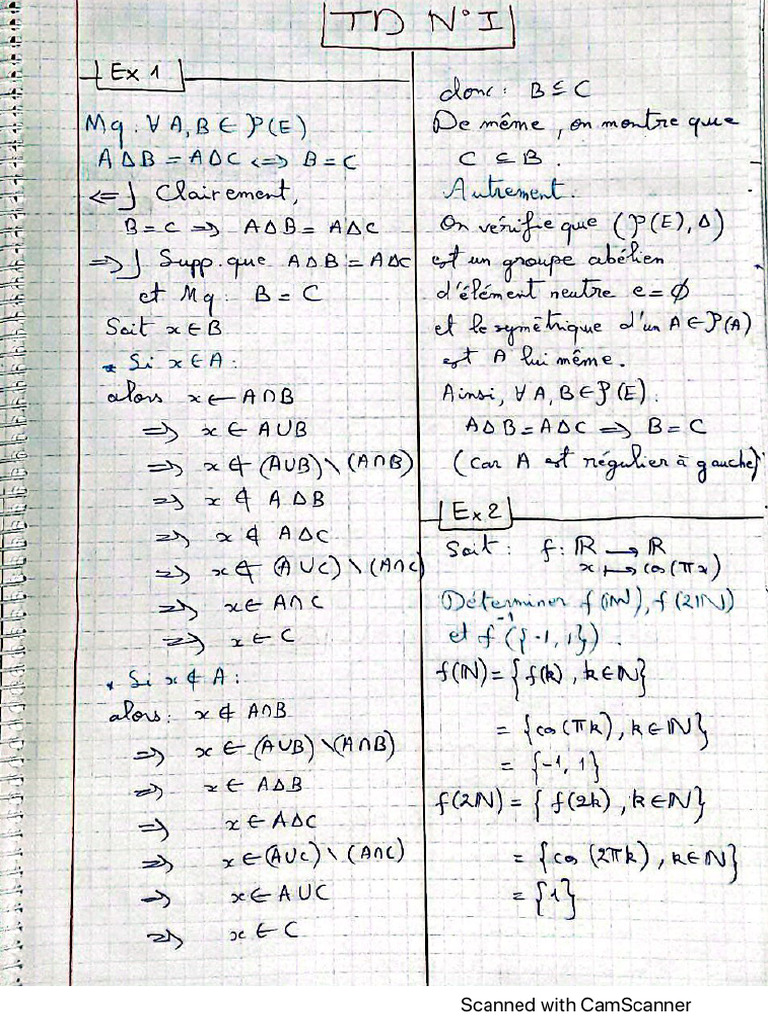 TD N°I
Ex 1
Mq. ∀ A, B ∈ P(E)
A Δ B = A Δ C <=> B = C
<=] Clairement,
B = C => A Δ B = A Δ C
=>] Supp. que A Δ B = A Δ C
et Mq: B = C
Soit x ∈ B
* Si x ∈ A :
alors x ∈ A ∩ B
=> x ∈ A ∪ B
=> x ∉ (A ∪ B) \ (A ∩ B)
=> x ∉ A Δ B
=> x ∉ A Δ C
=> x ∉ (A ∪ C) \ (A ∩ C)
=> x ∈ A ∩ C
=> x ∈ C
* Si x ∉ A :
alors: x ∉ A ∩ B
=> x ∈ (A ∪ B) \ (A ∩ B)
=> x ∈ A Δ B
=> x ∈ A Δ C
=> x ∈ (A ∪ C) \ (A ∩ C)
=> x ∈ A ∪ C
=> x ∈ C
donc: B ⊆ C
De même, on montre que
C ⊆ B.
Autrement.
On vérifie que (P(E), Δ)
est un groupe abélien
d'élément neutre e = ∅
et le symétrique d'un A ∈ P(A)
est A lui même.
Ainsi, ∀ A, B ∈ P(E).
A Δ B = A Δ C => B = C
(car A est régulier à gauche)
Ex 2
Soit : f : ℝ → ℝ
x ↦ cos(πx)
Déterminer f(ℕ), f(2ℕ)
et f⁻¹({-1, 1}).
f(ℕ) = {f(k), k ∈ ℕ}
= {cos(πk), k ∈ ℕ}
= {-1, 1}
f(2ℕ) = {f(2k), k ∈ ℕ}
= {cos(2πk), k ∈ ℕ}
= {1}
Scanned with CamScanner